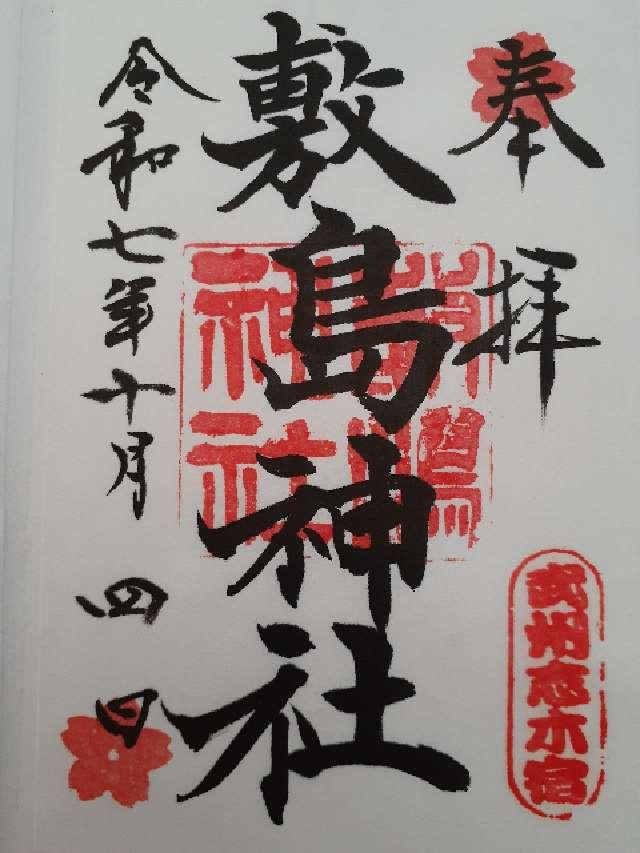 奉拝
武州志木宿
敷島神社
敷嶋神社
令和七年十月四日